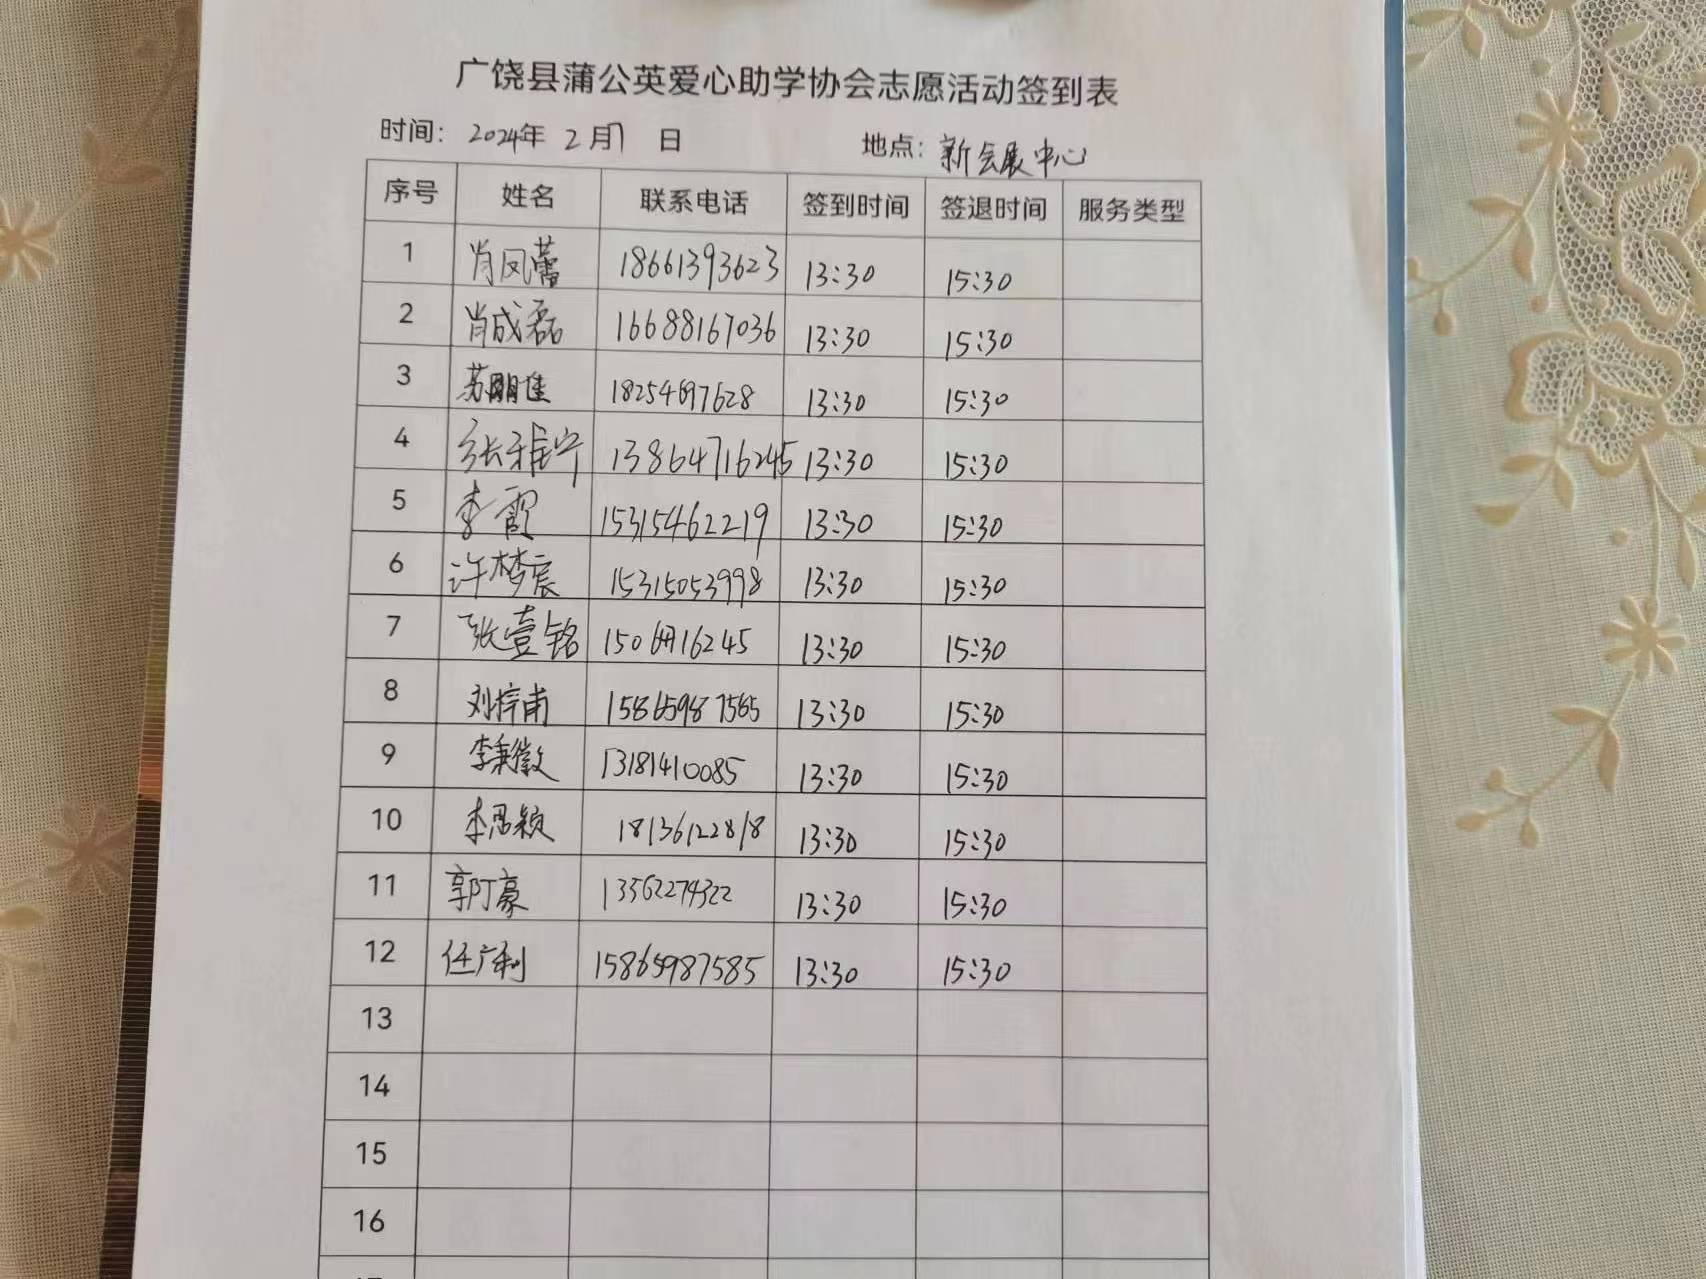 广饶县蒲公英爱心助学协会志愿活动签到表
时间: 2024年 2月7日 地点: 新会展中心
序号 姓名 联系电话 签到时间 签退时间 服务类型
1 肖凤蕾 18661393623 13:30 15:30
2 肖成磊 16688167036 13:30 15:30
3 苏朋佳 18254697628 13:30 15:30
4 张雅宁 13864716245 13:30 15:30
5 李霞 15315462219 13:30 15:30
6 许梦宸 15315053998 13:30 15:30
7 张壹铭 13:30 15:30
8 刘梓甫 15865987565 13:30 15:30
9 李秉徽 13181410085 13:30 15:30
10 李思颖 18136122818 13:30 15:30
11 郭丁豪 13562274322 13:30 15:30
12 任广利 15865987585 13:30 15:30
13
14
15
16